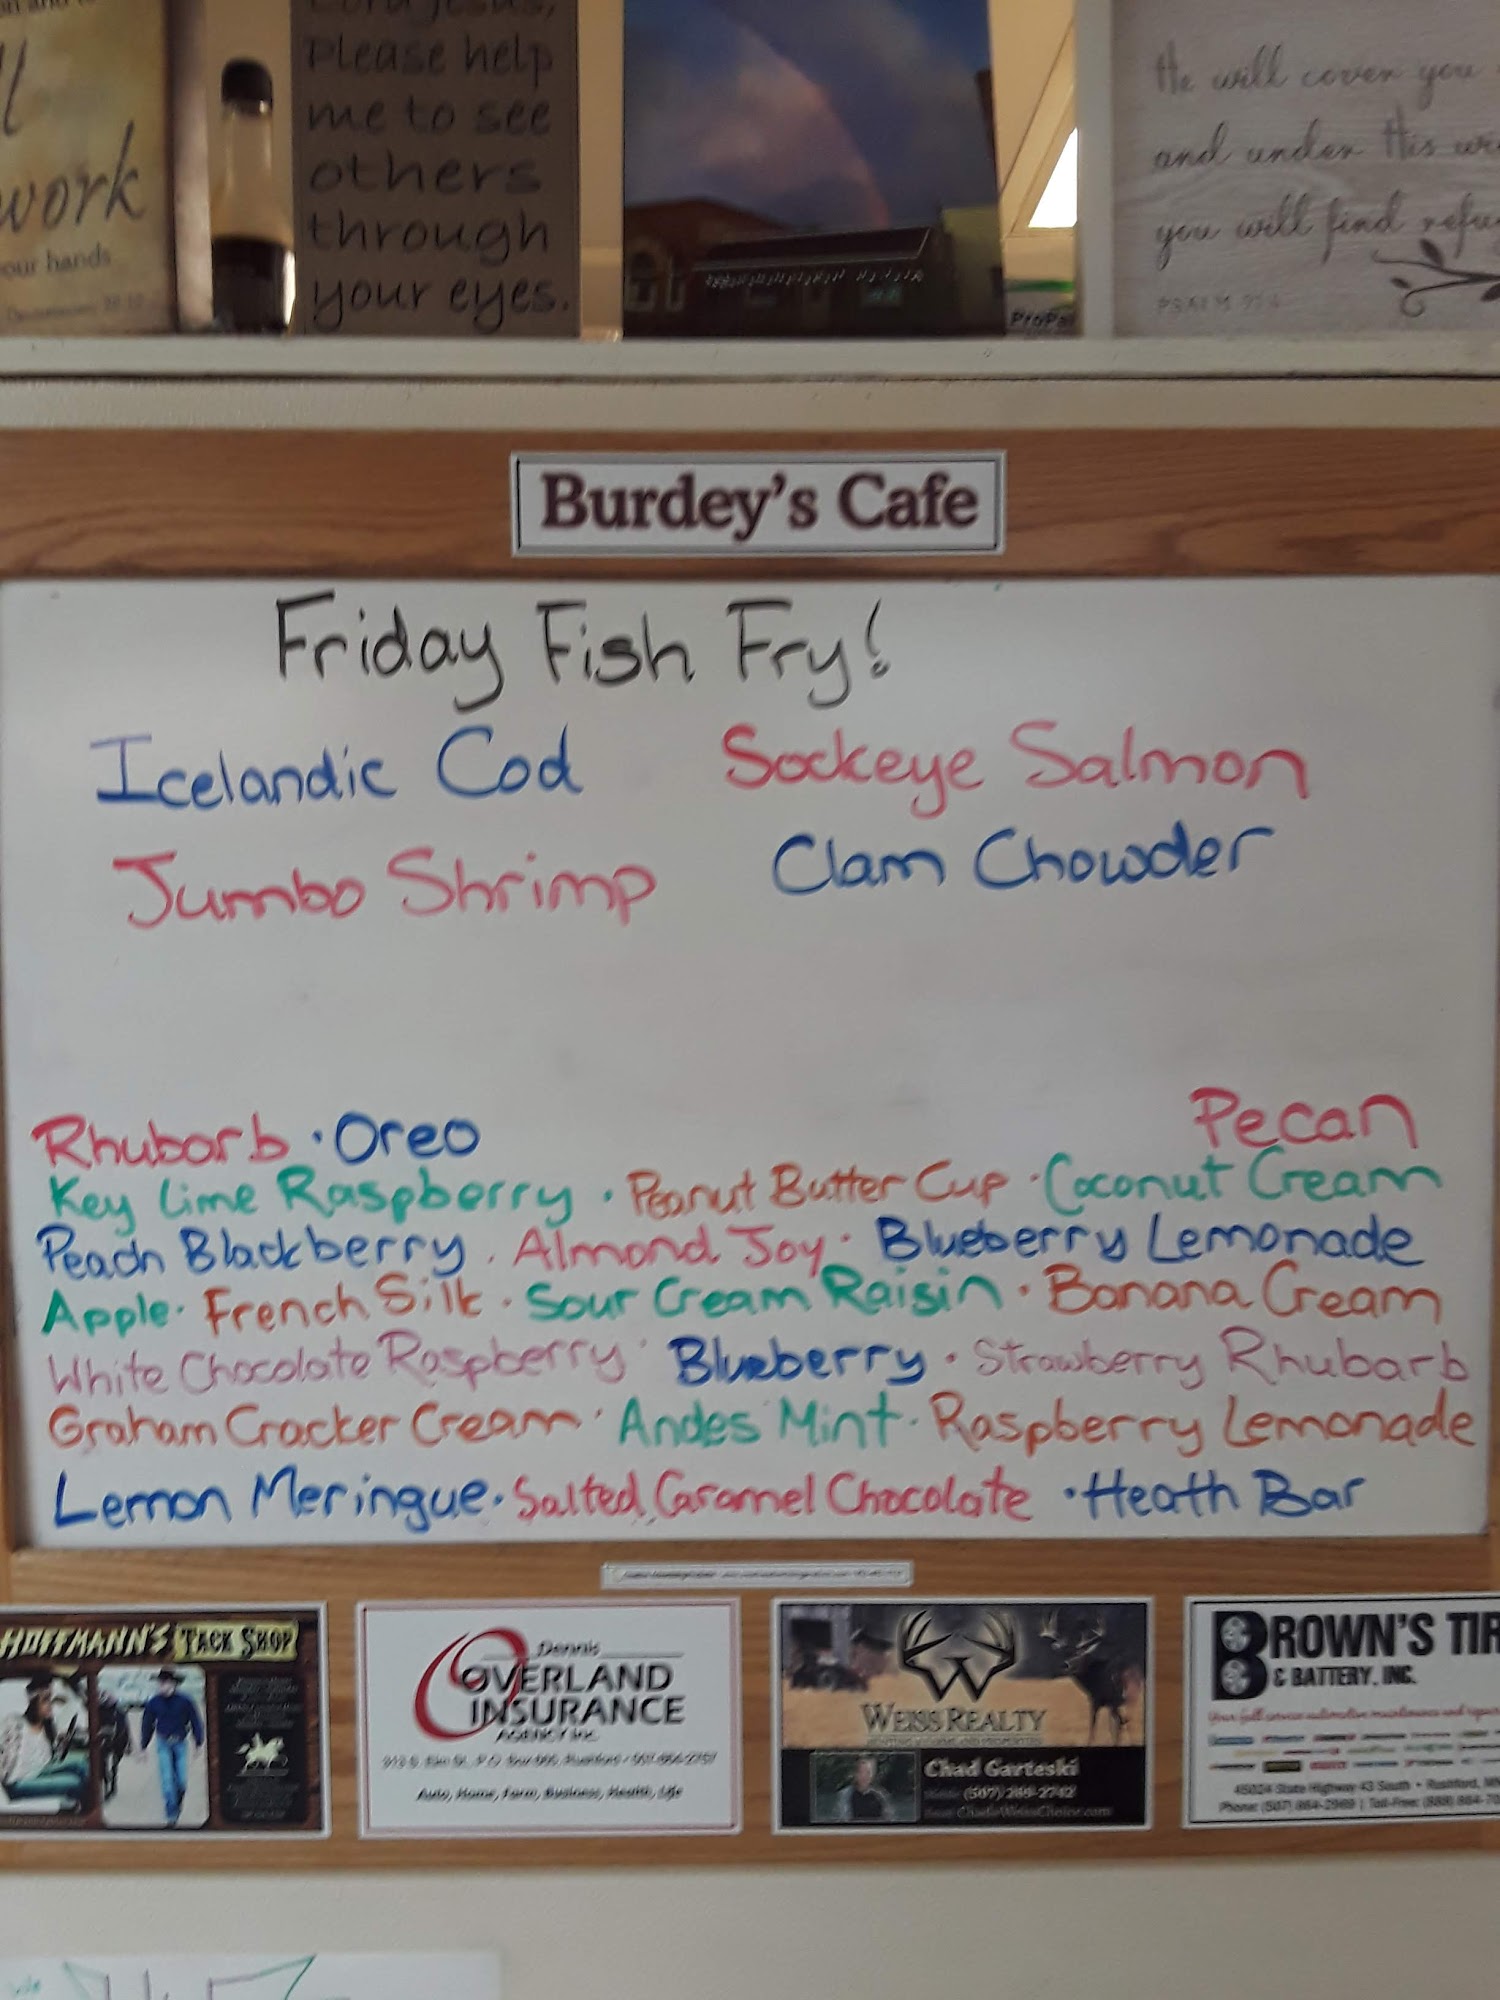 work
your hands
Lord Jesus,
Please help
me to see
others
through
your eyes.
He will cover you
and under His
you will find
PSALM 91:4
Burdey's Cafe
Friday Fish Fry!
Icelandic Cod Sockeye Salmon
Jumbo Shrimp Clam Chowder
Rhubarb · Oreo Pecan
Key Lime Raspberry · Peanut Butter Cup · Coconut Cream
Peach Blackberry · Almond Joy · Blueberry Lemonade
Apple · French Silk · Sour Cream Raisin · Banana Cream
White Chocolate Raspberry · Blueberry · Strawberry Rhubarb
Graham Cracker Cream · Andes Mint · Raspberry Lemonade
Lemon Meringue · Salted Caramel Chocolate · Heath Bar
HOFFMANN'S TACK SHOP
Dennis
OVERLAND
INSURANCE
AGENCY Inc.
Auto, Home, Farm, Business, Health, Life
WEISS REALTY
Chad Garteski
(507) 269-2742
BROWN'S
& BATTERY, INC.
Your full service automotive maintenance and
45024 State Highway 43 South • Rushford,
Phone: (507) 864-2969 | Toll-Free: (888)